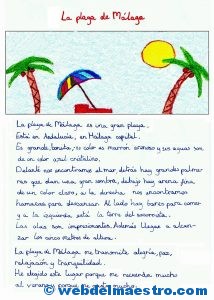 La playa de Málaga
La playa de Málaga es una gran playa.
Está en Andalucía, en Málaga capital.
Es grande, bonita, su color es marrón arenoso y sus aguas son
de un color azul cristalino.
Delante nos encontramos el mar, detrás hay grandes palme-
ras que dan una gran sombra, debajo hay arena fina
de un color claro, a la derecha nos encontramos
hamacas para descansar. Al lado hay bares para comer
y a la izquierda, está la torre del socorrista.
Las olas son impresionantes. Además llegan a alcan-
zar los cinco metros de altura.
La playa de Málaga me transmite alegría, paz,
relajación y tranquilidad.
He elegido este lugar porque me recuerda mucho
al verano y porque me gusta mucho.
© webdelmaestro.com